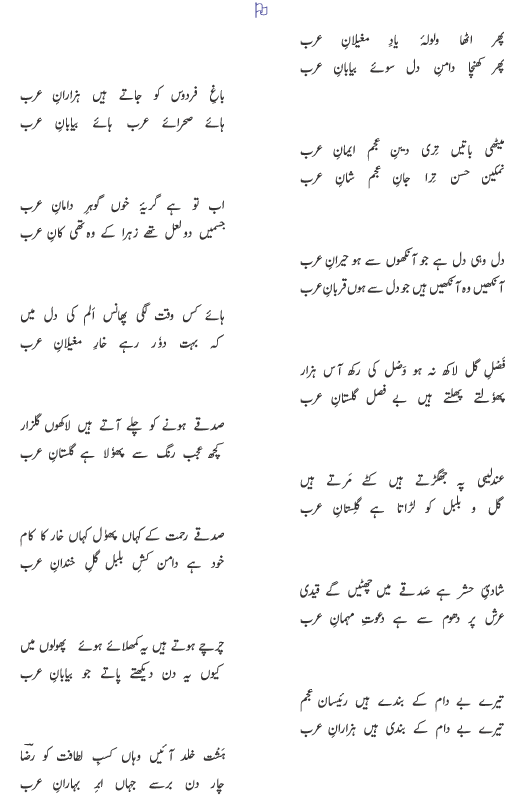 پھر اٹھا ولولۂ یادِ مغیلانِ عرب
پھر کھنچا دامنِ دل سوئے بیابانِ عرب
باغِ فردوس کو جاتے ہیں ہزارانِ عرب
ہائے صحرائے عرب ہائے بیابانِ عرب
میٹھی باتیں تری دینِ عجم ایمانِ عرب
نمکین حسن ترا جانِ عجم شانِ عرب
اب تو ہے گریۂ خوں گوہرِ دامانِ عرب
جسمیں دو لعل تھے زہرا کے وہ تھی کانِ عرب
دل وہی دل ہے جو آنکھوں سے ہو حیرانِ عرب
آنکھیں وہ آنکھیں ہیں جو دل سے ہوں قربانِ عرب
ہائے کس وقت لگی پھانس اَلم کی دل میں
کہ بہت دوٗر رہے خارِ مغیلانِ عرب
فَصْلِ گل لاکھ نہ ہو وَصْل کی رکھ آس ہزار
پھوٗلتے پھلتے ہیں بے فصل گلستانِ عرب
صدقے ہونے کو چلے آتے ہیں لاکھوں گلزار
کچھ عجب رنگ سے پھوٗلا ہے گلستانِ عرب
عندلیبی پہ جھگڑتے ہیں کٹے مَرتے ہیں
گل و بلبل کو لڑاتا ہے گلِستانِ عرب
صدقے رحمت کے کہاں پھوٗل کہاں خار کا کام
خود ہے دامن کشِ بلبل گلِ خندانِ عرب
شادیِٔ حشر ہے صَدقے میں چھٹیں گے قیدی
عرش پر دھوم سے ہے دعوتِ مہمانِ عرب
چرچے ہوتے ہیں یہ کمھلائے ہوئے پھولوں میں
کیوں یہ دن دیکھتے پاتے جو بیابانِ عرب
تیرے بے دام کے بندے ہیں رئیسانِ عجم
تیرے بے دام کے بندی ہیں ہزارانِ عرب
ہَشْت خلد آئیں وہاں کسبِ لطافت کو رضاؔ
چار دن برسے جہاں ابرِ بہارانِ عرب